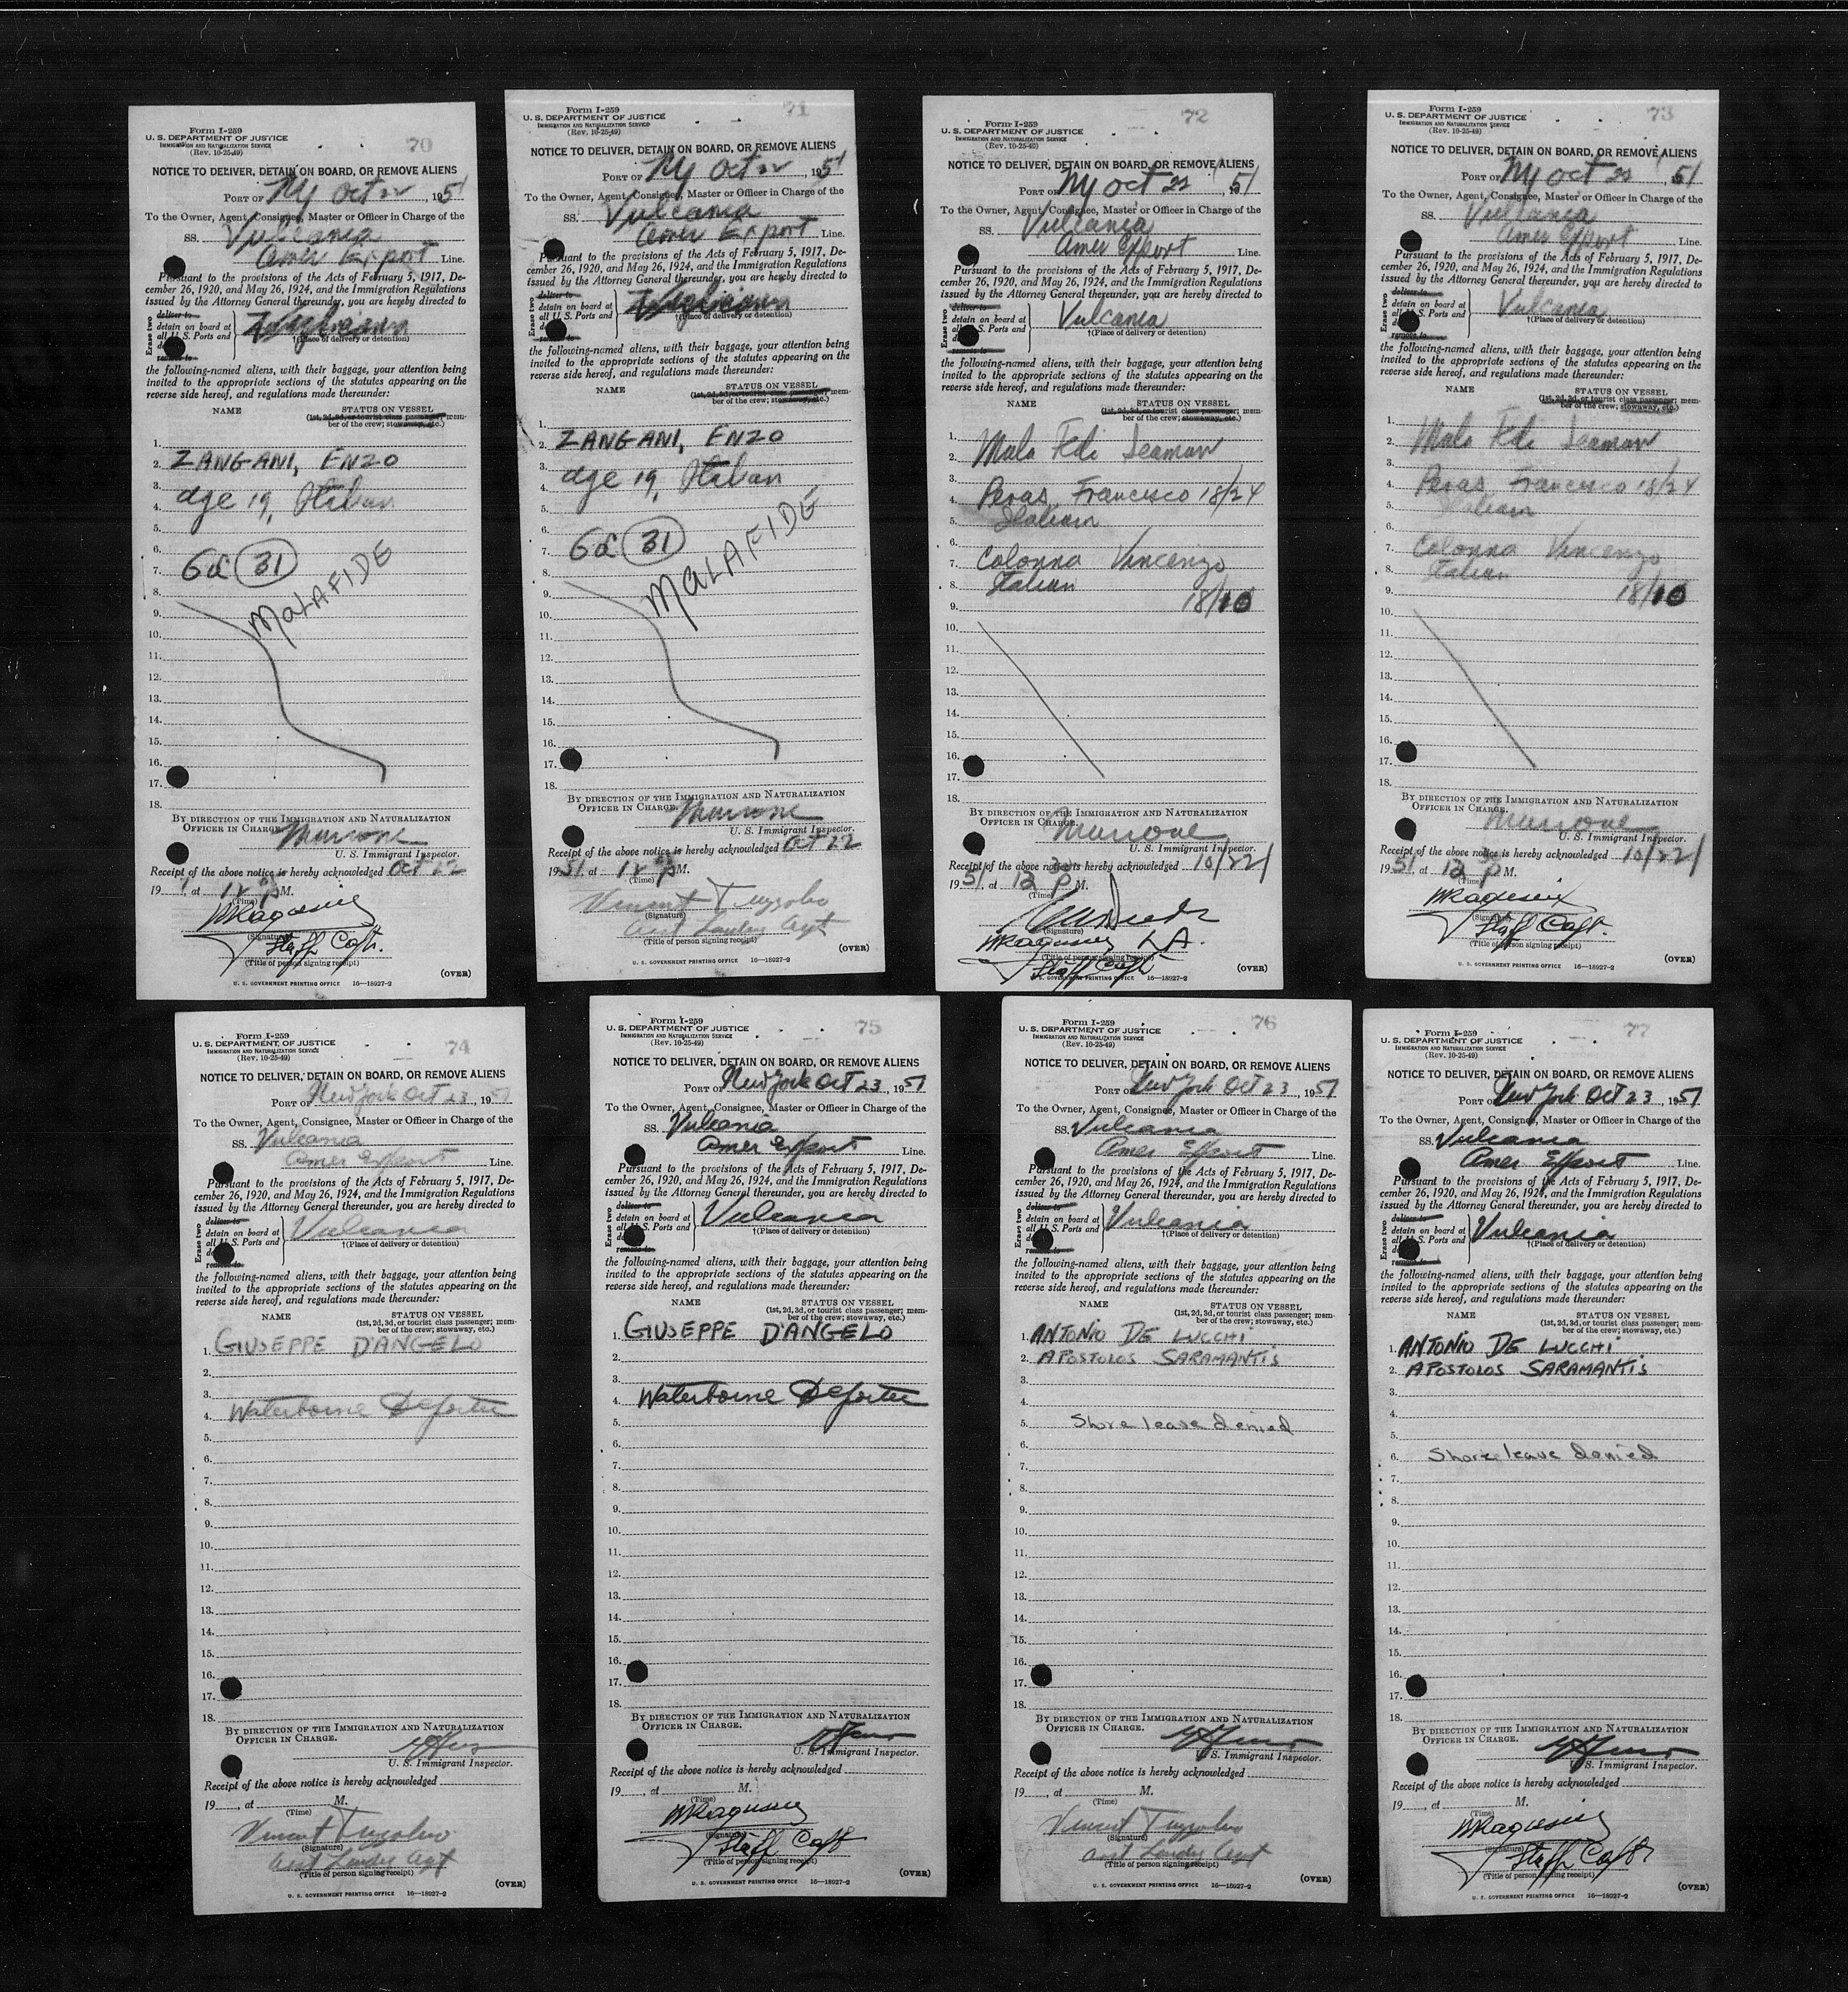 Form I-259
U. S. DEPARTMENT OF JUSTICE
IMMIGRATION AND NATURALIZATION SERVICE
(Rev. 10-25-49)
70
NOTICE TO DELIVER, DETAIN ON BOARD, OR REMOVE ALIENS
PORT OF NY Oct 22, 1951
To the Owner, Agent, Consignee, Master or Officer in Charge of the
SS. Vulcania
Amer Export
Pursuant to the provisions of the Acts of February 5, 1917, De-
cember 26, 1920, and May 26, 1924, and the Immigration Regulations
issued by the Attorney General thereunder, you are hereby directed to
Erase two
deliver to
detain on board at
all U. S. Ports and
remove to
†(Place of delivery or detention)
the following-named aliens, with their baggage, your attention being
invited to the appropriate sections of the statutes appearing on the
reverse side hereof, and regulations made thereunder:
NAME STATUS ON VESSEL
(1st, 2d, 3d, or tourist class passenger; mem-
ber of the crew; stowaway, etc.)
1.
2. ZANGANI, ENZO
3.
4. age 19, Italian
5.
6.
7. (31)
MALAFIDE
8.
9.
10.
11.
12.
13.
14.
15.
16.
17.
18.
BY DIRECTION OF THE IMMIGRATION AND NATURALIZATION
OFFICER IN CHARGE.
U. S. Immigrant Inspector.
Receipt of the above notice is hereby acknowledged Oct 22
19 at 12 P M.
(Time)
(Signature)
Staff Capt.
(Title of person signing receipt)
(OVER)
U. S. GOVERNMENT PRINTING OFFICE 16—18927-2
Form I-259
U. S. DEPARTMENT OF JUSTICE
IMMIGRATION AND NATURALIZATION SERVICE
(Rev. 10-25-49)
71
NOTICE TO DELIVER, DETAIN ON BOARD, OR REMOVE ALIENS
PORT OF NY Oct 22, 1951
To the Owner, Agent, Consignee, Master or Officer in Charge of the
SS. Vulcania
Amer Export Line.
Pursuant to the provisions of the Acts of February 5, 1917, De-
cember 26, 1920, and May 26, 1924, and the Immigration Regulations
issued by the Attorney General thereunder, you are hereby directed to
Erase two
deliver to
detain on board at
all U. S. Ports and
remove to
†(Place of delivery or detention)
the following-named aliens, with their baggage, your attention being
invited to the appropriate sections of the statutes appearing on the
reverse side hereof, and regulations made thereunder:
NAME STATUS ON VESSEL
(1st, 2d, 3d, or tourist class passenger; mem-
ber of the crew; stowaway, etc.)
1.
2. ZANGANI, ENZO
3.
4. age 19, Italian
5.
6.
7. (31)
MALAFIDE
8.
9.
10.
11.
12.
13.
14.
15.
16.
17.
18.
BY DIRECTION OF THE IMMIGRATION AND NATURALIZATION
OFFICER IN CHARGE.
U. S. Immigrant Inspector.
Receipt of the above notice is hereby acknowledged Oct 22
1951 at 12 P M.
(Time)
Vincent Tuzzolino
(Signature)
Asst Landing Agt
(Title of person signing receipt)
(OVER)
U. S. GOVERNMENT PRINTING OFFICE 16—18927-2
Form I-259
U. S. DEPARTMENT OF JUSTICE
IMMIGRATION AND NATURALIZATION SERVICE
(Rev. 10-25-49)
72
NOTICE TO DELIVER, DETAIN ON BOARD, OR REMOVE ALIENS
PORT OF NY Oct 22 51
To the Owner, Agent, Consignee, Master or Officer in Charge of the
SS. Vulcania
Amer Export Line.
Pursuant to the provisions of the Acts of February 5, 1917, De-
cember 26, 1920, and May 26, 1924, and the Immigration Regulations
issued by the Attorney General thereunder, you are hereby directed to
Erase two
deliver to
detain on board at
all U. S. Ports and
remove to
Vulcania
†(Place of delivery or detention)
the following-named aliens, with their baggage, your attention being
invited to the appropriate sections of the statutes appearing on the
reverse side hereof, and regulations made thereunder:
NAME STATUS ON VESSEL
(1st, 2d, 3d, or tourist class passenger; mem-
ber of the crew; stowaway, etc.)
1.
2. Mala Fidi Seaman
3.
4. Peras Francisco 18/24
5. Italian
6.
7. Colonna Vincenzo
8. Italian
9. 18/10
10.
11.
12.
13.
14.
15.
16.
17.
18.
BY DIRECTION OF THE IMMIGRATION AND NATURALIZATION
OFFICER IN CHARGE.
U. S. Immigrant Inspector.
Receipt of the above notice is hereby acknowledged 10/22/
1951, at 12 P M.
(Time)
L.A.
(Title of person signing receipt)
Staff Capt
(OVER)
U. S. GOVERNMENT PRINTING OFFICE 16—18927-2
Form I-259
U. S. DEPARTMENT OF JUSTICE
IMMIGRATION AND NATURALIZATION SERVICE
(Rev. 10-25-49)
73
NOTICE TO DELIVER, DETAIN ON BOARD, OR REMOVE ALIENS
PORT OF NY Oct 22 51
To the Owner, Agent, Consignee, Master or Officer in Charge of the
SS. Vulcania
Amer Export Line.
Pursuant to the provisions of the Acts of February 5, 1917, De-
cember 26, 1920, and May 26, 1924, and the Immigration Regulations
issued by the Attorney General thereunder, you are hereby directed to
Erase two
deliver to
detain on board at
all U. S. Ports and
remove to
Vulcania
†(Place of delivery or detention)
the following-named aliens, with their baggage, your attention being
invited to the appropriate sections of the statutes appearing on the
reverse side hereof, and regulations made thereunder:
NAME STATUS ON VESSEL
(1st, 2d, 3d, or tourist class passenger; mem-
ber of the crew; stowaway, etc.)
1.
2. Mala Fidi Seaman
3.
4. Peras Francisco 18/24
5. Italian
6.
7. Colonna Vincenzo
8. Italian
9. 18/10
10.
11.
12.
13.
14.
15.
16.
17.
18.
BY DIRECTION OF THE IMMIGRATION AND NATURALIZATION
OFFICER IN CHARGE.
U. S. Immigrant Inspector.
Receipt of the above notice is hereby acknowledged 10/22/
1951, at 12 P M.
(Time)
(Signature)
Staff Capt
(Title of person signing receipt)
(OVER)
U. S. GOVERNMENT PRINTING OFFICE 16—18927-2
Form I-259
U. S. DEPARTMENT OF JUSTICE
IMMIGRATION AND NATURALIZATION SERVICE
(Rev. 10-25-49)
74
NOTICE TO DELIVER, DETAIN ON BOARD, OR REMOVE ALIENS
PORT OF New York Oct 23, 1951
To the Owner, Agent, Consignee, Master or Officer in Charge of the
SS. Vulcania
Amer Export Line.
Pursuant to the provisions of the Acts of February 5, 1917, De-
cember 26, 1920, and May 26, 1924, and the Immigration Regulations
issued by the Attorney General thereunder, you are hereby directed to
Erase two
deliver to
detain on board at
all U. S. Ports and
remove to
Vulcania
†(Place of delivery or detention)
the following-named aliens, with their baggage, your attention being
invited to the appropriate sections of the statutes appearing on the
reverse side hereof, and regulations made thereunder:
NAME STATUS ON VESSEL
(1st, 2d, 3d, or tourist class passenger; mem-
ber of the crew; stowaway, etc.)
1. GIUSEPPE D'ANGELO
2.
3.
4. Waterborne Deportee
5.
6.
7.
8.
9.
10.
11.
12.
13.
14.
15.
16.
17.
18.
BY DIRECTION OF THE IMMIGRATION AND NATURALIZATION
OFFICER IN CHARGE.
U. S. Immigrant Inspector.
Receipt of the above notice is hereby acknowledged
19 , at M.
(Time)
Vincent Tuzzolino
(Signature)
Asst Landing Agt
(Title of person signing receipt)
(OVER)
U. S. GOVERNMENT PRINTING OFFICE 16—18927-2
Form I-259
U. S. DEPARTMENT OF JUSTICE
IMMIGRATION AND NATURALIZATION SERVICE
(Rev. 10-25-49)
75
NOTICE TO DELIVER, DETAIN ON BOARD, OR REMOVE ALIENS
PORT OF New York Oct 23, 1951
To the Owner, Agent, Consignee, Master or Officer in Charge of the
SS. Vulcania
Amer Export Line.
Pursuant to the provisions of the Acts of February 5, 1917, De-
cember 26, 1920, and May 26, 1924, and the Immigration Regulations
issued by the Attorney General thereunder, you are hereby directed to
Erase two
deliver to
detain on board at
all U. S. Ports and
remove to
Vulcania
†(Place of delivery or detention)
the following-named aliens, with their baggage, your attention being
invited to the appropriate sections of the statutes appearing on the
reverse side hereof, and regulations made thereunder:
NAME STATUS ON VESSEL
(1st, 2d, 3d, or tourist class passenger; mem-
ber of the crew; stowaway, etc.)
1. GIUSEPPE D'ANGELO
2.
3.
4. Waterborne Deportee
5.
6.
7.
8.
9.
10.
11.
12.
13.
14.
15.
16.
17.
18.
BY DIRECTION OF THE IMMIGRATION AND NATURALIZATION
OFFICER IN CHARGE.
U. S. Immigrant Inspector.
Receipt of the above notice is hereby acknowledged
19 , at M.
(Time)
(Signature)
Staff Capt
(Title of person signing receipt)
(OVER)
U. S. GOVERNMENT PRINTING OFFICE 16—18927-2
Form I-259
U. S. DEPARTMENT OF JUSTICE
IMMIGRATION AND NATURALIZATION SERVICE
(Rev. 10-25-49)
76
NOTICE TO DELIVER, DETAIN ON BOARD, OR REMOVE ALIENS
PORT OF New York Oct 23, 1951
To the Owner, Agent, Consignee, Master or Officer in Charge of the
SS. Vulcania
Amer Export Line.
Pursuant to the provisions of the Acts of February 5, 1917, De-
cember 26, 1920, and May 26, 1924, and the Immigration Regulations
issued by the Attorney General thereunder, you are hereby directed to
Erase two
deliver to
detain on board at
all U. S. Ports and
remove to
Vulcania
†(Place of delivery or detention)
the following-named aliens, with their baggage, your attention being
invited to the appropriate sections of the statutes appearing on the
reverse side hereof, and regulations made thereunder:
NAME STATUS ON VESSEL
(1st, 2d, 3d, or tourist class passenger; mem-
ber of the crew; stowaway, etc.)
1. ANTONIO DE LUCCHI
2. APOSTOLOS SARAMANTIS
3.
4.
5. Shore leave denied
6.
7.
8.
9.
10.
11.
12.
13.
14.
15.
16.
17.
18.
BY DIRECTION OF THE IMMIGRATION AND NATURALIZATION
OFFICER IN CHARGE.
U. S. Immigrant Inspector.
Receipt of the above notice is hereby acknowledged
19 , at M.
(Time)
Vincent Tuzzolino
(Signature)
Asst Landing Agt
(Title of person signing receipt)
(OVER)
U. S. GOVERNMENT PRINTING OFFICE 16—18927-2
Form I-259
U. S. DEPARTMENT OF JUSTICE
IMMIGRATION AND NATURALIZATION SERVICE
(Rev. 10-25-49)
77
NOTICE TO DELIVER, DETAIN ON BOARD, OR REMOVE ALIENS
PORT OF New York Oct 23, 1951
To the Owner, Agent, Consignee, Master or Officer in Charge of the
SS. Vulcania
Amer Export Line.
Pursuant to the provisions of the Acts of February 5, 1917, De-
cember 26, 1920, and May 26, 1924, and the Immigration Regulations
issued by the Attorney General thereunder, you are hereby directed to
Erase two
deliver to
detain on board at
all U. S. Ports and
remove to
Vulcania
†(Place of delivery or detention)
the following-named aliens, with their baggage, your attention being
invited to the appropriate sections of the statutes appearing on the
reverse side hereof, and regulations made thereunder:
NAME STATUS ON VESSEL
(1st, 2d, 3d, or tourist class passenger; mem-
ber of the crew; stowaway, etc.)
1. ANTONIO DE LUCCHI
2. APOSTOLOS SARAMANTIS
3.
4.
5.
6. Shore leave denied
7.
8.
9.
10.
11.
12.
13.
14.
15.
16.
17.
18.
BY DIRECTION OF THE IMMIGRATION AND NATURALIZATION
OFFICER IN CHARGE.
U. S. Immigrant Inspector.
Receipt of the above notice is hereby acknowledged
19 , at M.
(Time)
(Signature)
Staff Capt
(Title of person signing receipt)
(OVER)
U. S. GOVERNMENT PRINTING OFFICE 16—18927-2